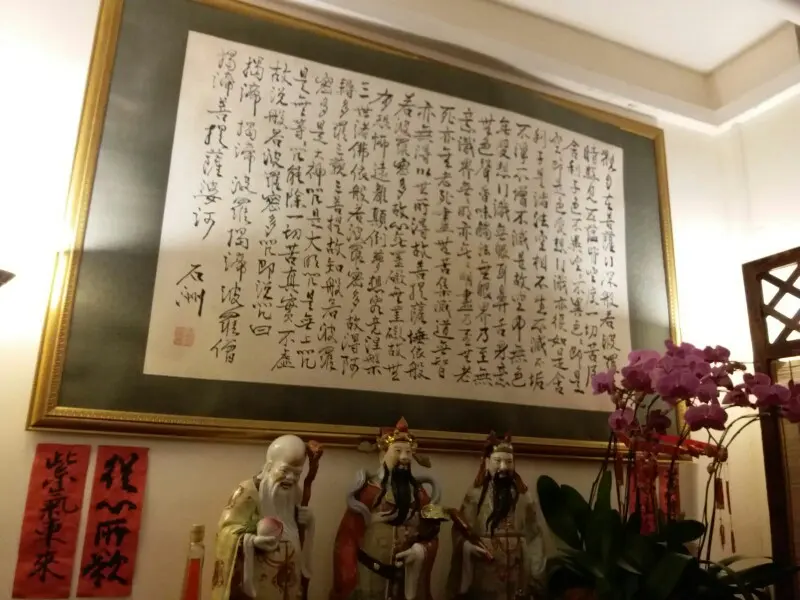 觀自在菩薩行深般若波羅
時照見五蘊皆空度一切苦厄
舍利子色不異空空不異色色即是
空空即是色受想行識亦復如是舍
利子是諸法空相不生不滅不垢
不淨不增不減是故空中無色
無受想行識無眼耳鼻舌身意
無色聲香味觸法無眼界乃至無
意識界無無明亦無無明盡乃至無老
死亦無老死盡無苦集滅道無智
亦無得以無所得故菩提薩埵依般
若波羅蜜多故心無罣礙無罣礙故無
有恐怖遠離顛倒夢想究竟涅槃
三世諸佛依般若波羅蜜多故得阿
耨多羅三藐三菩提故知般若波羅
蜜多是大神咒是大明咒是無上咒
是無等等咒能除一切苦真實不虛
故說般若波羅蜜多咒即說咒曰
揭諦揭諦波羅揭諦波羅僧
揭諦菩提薩婆訶
石洲
從心所欲
紫氣東來